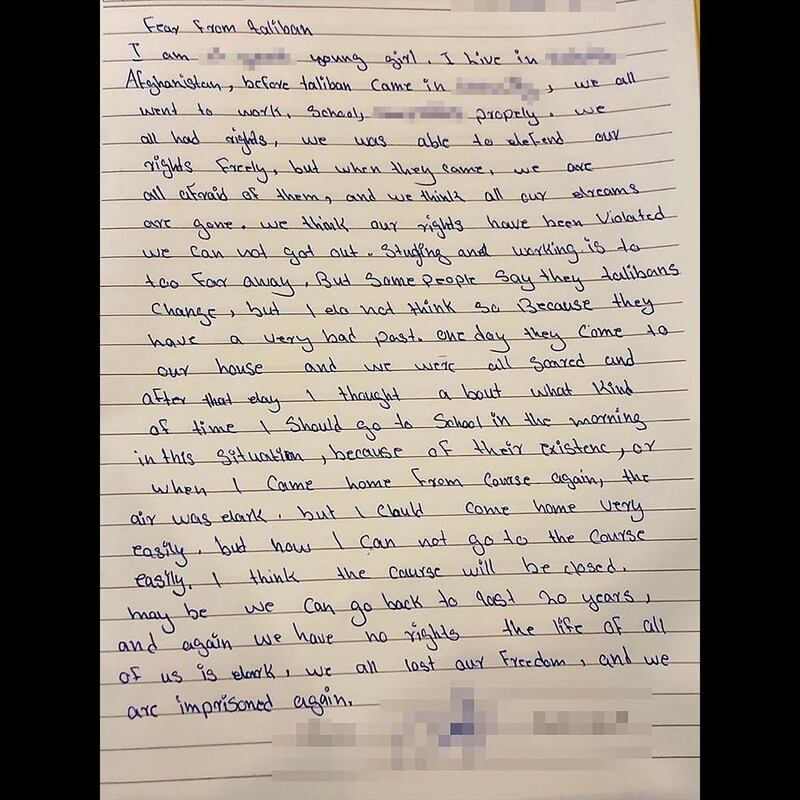 Fear From taliban
I am young girl. I live in
Afghanistan, before taliban came in , we all
went to work, School, propely. we
all had rights, we was able to defend our
rights Freely, but when they came, we are
all afraid of them, and we think all our dreams
are gone. we think our rights have been Violated
we can not got out. Studing and working is to
too far away, But Some people say they talibans
Change, but I do not think so Because they
have a very bad past. one day they Come to
our house and we were all Scared and
after that day I thought a bout what Kind
of time I Should go to School in the morning
in this Situation, because of their existenc, or
when I Came home From Course again, the
air was dark, but I Could come home very
easily, but now I Can not go to the Course
easily. I think the Course will be closed.
may be we can go back to last 20 years,
and again we have no rights the life of all
of us is dark, we all lost our Freedom, and we
are imprisoned again.